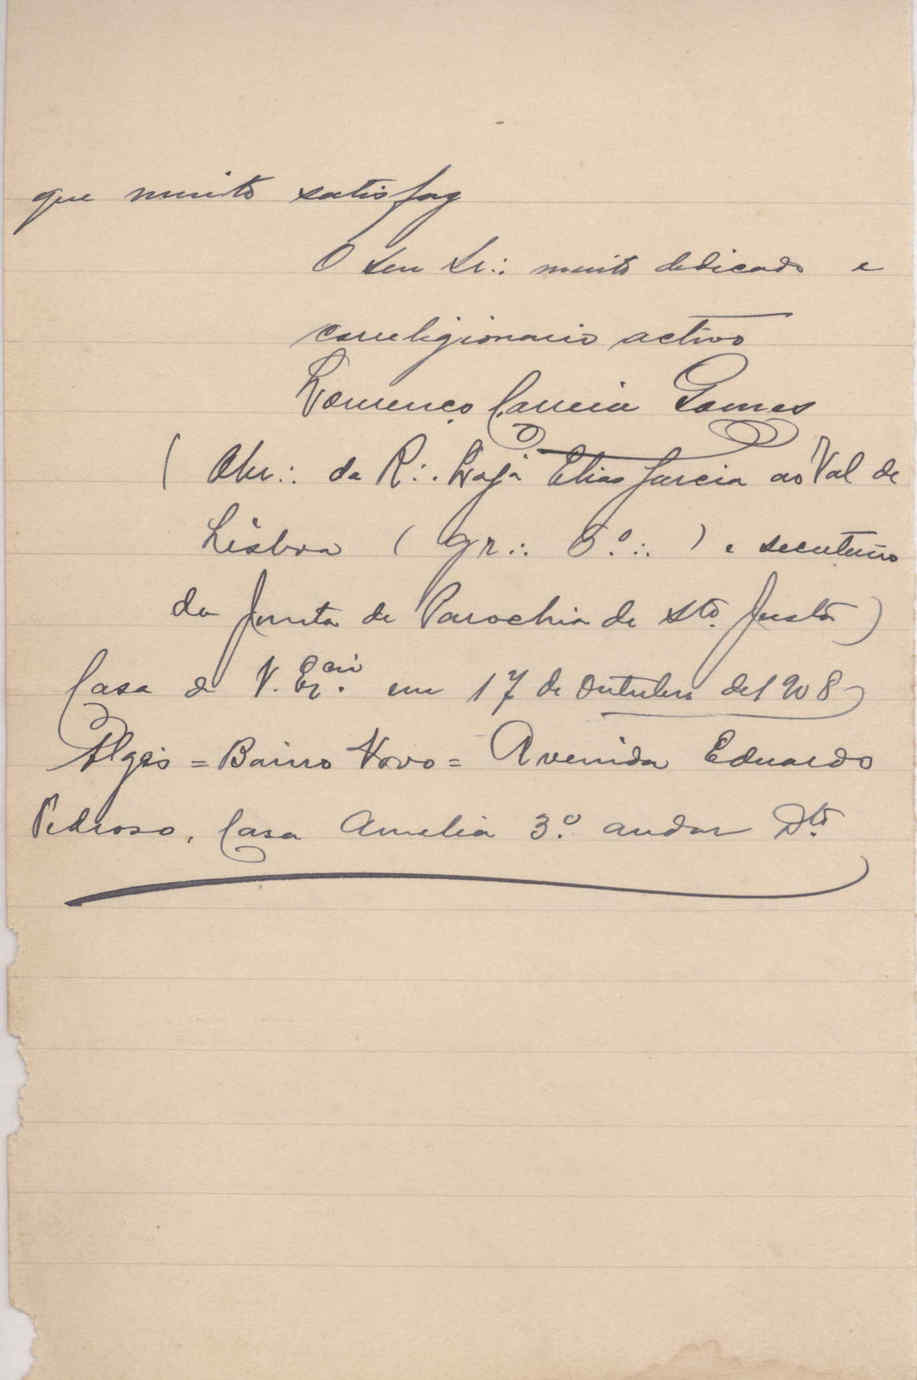 que muito satisfaz
O seu Ir∴ muito dedicado e
correligionario activo
Lourenço Correia Gomes
( Obr∴ da R∴ Loja Elias Garcia ao Val de
Lisboa ( gr∴ 5.º∴ ) e secretario
da Junta de Parochia de Sta. Justa )
Casa de V. Excia. em 17 de Outubro de 1908
Algés = Bairro Novo = Avenida Eduardo
Pedroso, Casa Amelia 3.º andar Dto.